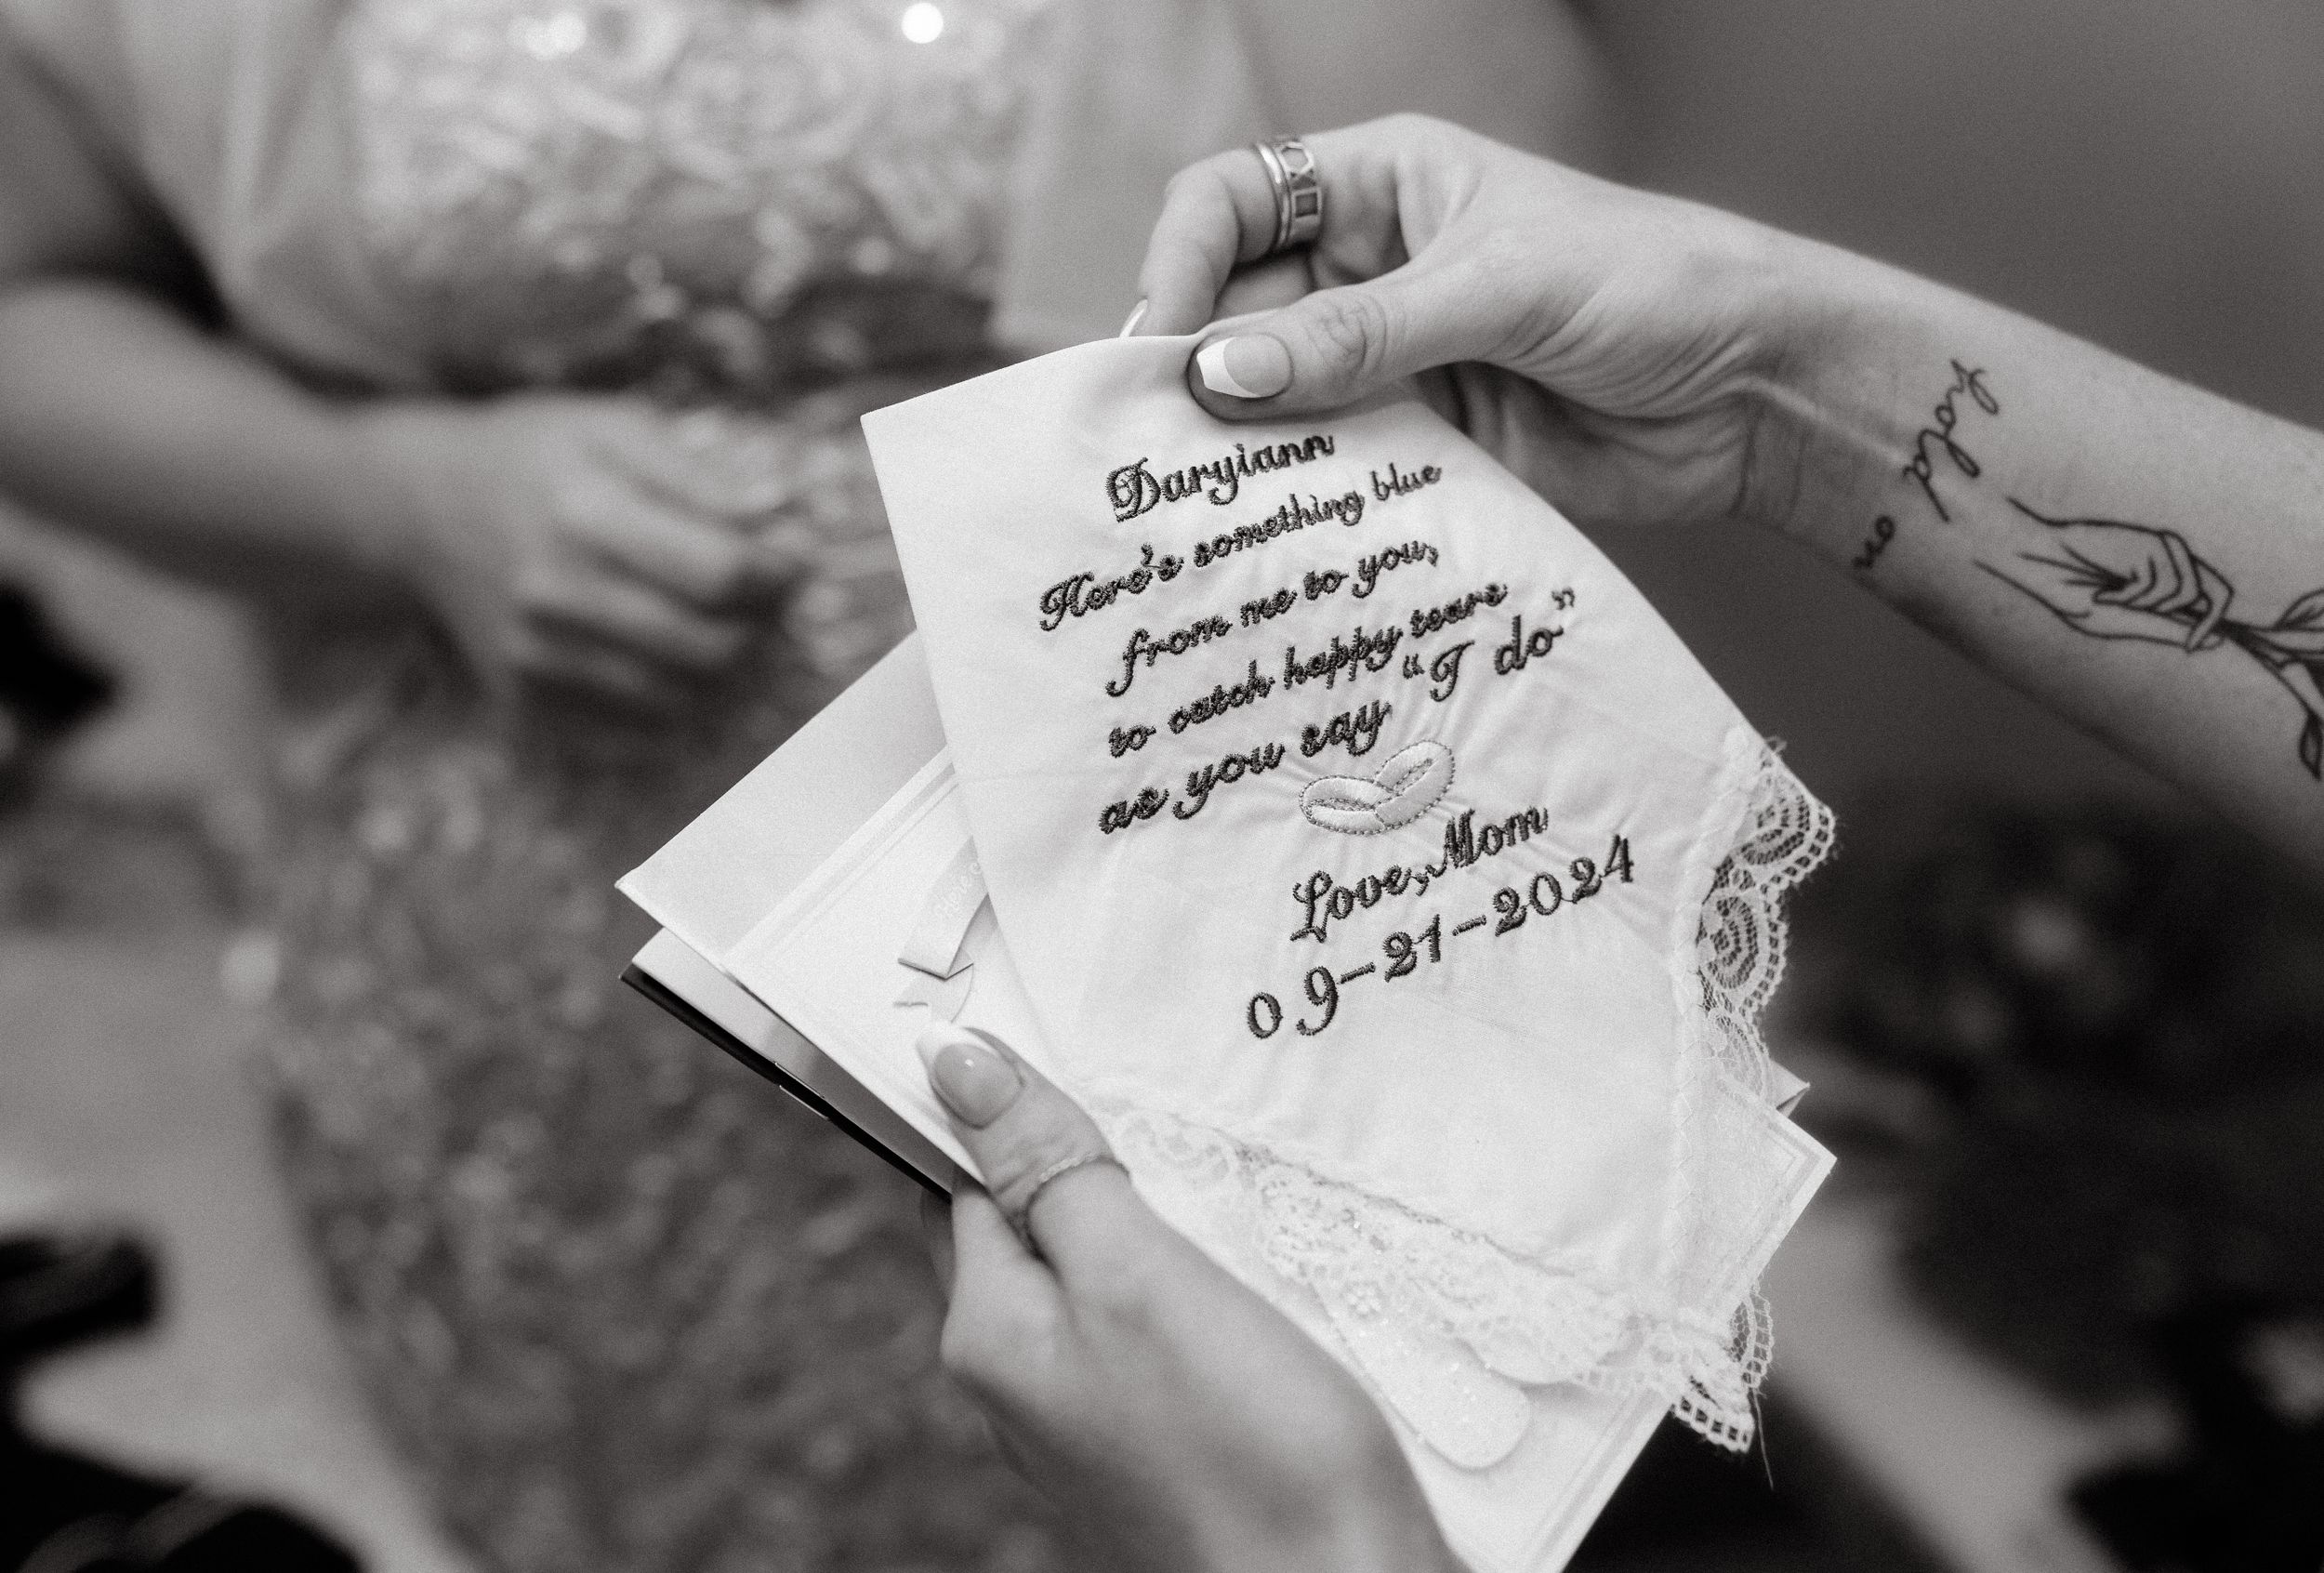 Daryiann
Here's something blue
from me to you,
to catch happy tears
as you say “I do”
Love, Mom
09-21-2024
hold
on